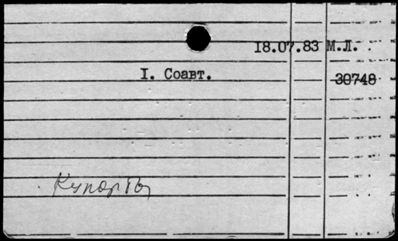 18.07.83 М.Л.
I. Соавт.
30748